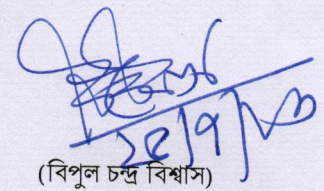 ২৫/৭/২৩
(বিপুল চন্দ্র বিশ্বাস)